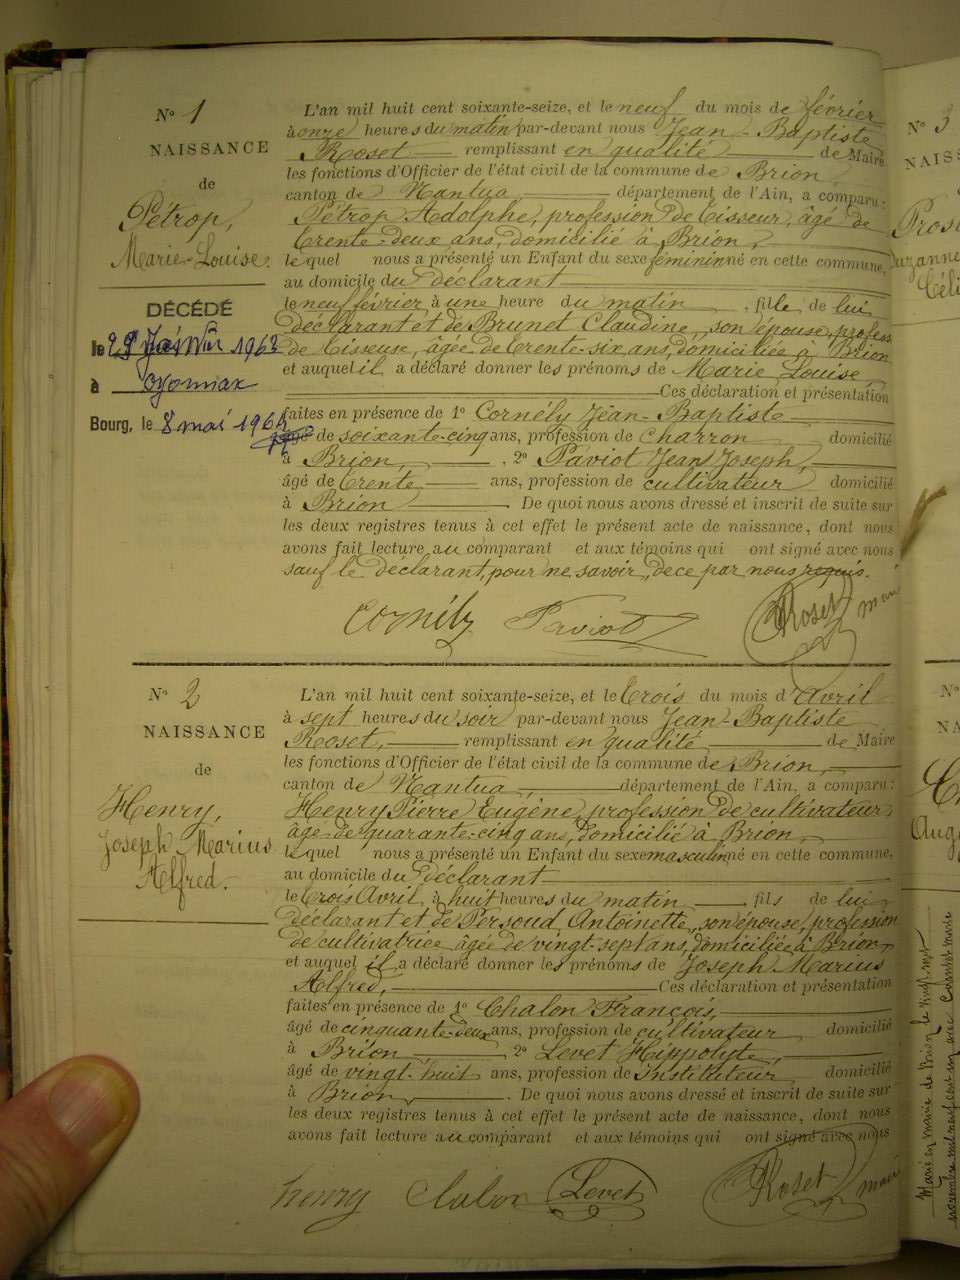 N° 1
NAISSANCE
de
Pétrop,
Marie-Louise.
DÉCÉDÉ
le 29 Janvier 1963
à Oyonnax
Bourg, le 8 mai 1964
L'an mil huit cent soixante-seize, et le neuf du mois de février
à onze heures du matin par-devant nous Jean-Baptiste
Roset remplissant en qualité de Maire
les fonctions d'Officier de l'état civil de la commune de Brion
canton de Nantua département de l'Ain, a comparu:
Pétrop Adolphe, profession de tisseur, âgé de
trente-deux ans, domicilié à Brion,
lequel nous a présenté un Enfant du sexe féminin né en cette commune,
au domicile du déclarant
le neuf février à une heure du matin, fille de lui
déclarant et de Brunet Claudine, son épouse, profess
de tisseuse, âgée de trente-six ans, domiciliée à Brion
et auquel il a déclaré donner les prénoms de Marie Louise
Ces déclaration et présentation
faites en présence de 1° Cornély Jean-Baptiste
âgé de soixante-cinq ans, profession de charron domicilié
à Brion, 2° Paviot Jean Joseph,
âgé de trente ans, profession de cultivateur domicilié
à Brion De quoi nous avons dressé et inscrit de suite sur
les deux registres tenus à cet effet le présent acte de naissance, dont nous
avons fait lecture au comparant et aux témoins qui ont signé avec nous
sauf le déclarant, pour ne savoir, de ce par nous requis.
Cornély Paviot Roset maire
N° 2
NAISSANCE
de
Henry,
Joseph Marius
Alfred.
L'an mil huit cent soixante-seize, et le trois du mois d'avril
à sept heures du soir par-devant nous Jean-Baptiste
Roset, remplissant en qualité de Maire
les fonctions d'Officier de l'état civil de la commune de Brion,
canton de Nantua, département de l'Ain, a comparu:
Henry Pierre Eugène, profession de cultivateur,
âgé de quarante-cinq ans, domicilié à Brion,
lequel nous a présenté un Enfant du sexe masculin né en cette commune,
au domicile du déclarant
le trois Avril à huit heures du matin, fils de lui
déclarant et de Persoud Antoinette, son épouse, profession
de cultivatrice âgée de vingt-sept ans, domiciliée à Brion,
et auquel il a déclaré donner les prénoms de Joseph Marius
Alfred, Ces déclaration et présentation
faites en présence de 1° Chalon François,
âgé de cinquante-deux ans, profession de cultivateur domicilié
à Brion, 2° Levet Hippolyte,
âgé de vingt-huit ans, profession de instituteur domicilié
à Brion, De quoi nous avons dressé et inscrit de suite sur
les deux registres tenus à cet effet le présent acte de naissance, dont nous
avons fait lecture au comparant et aux témoins qui ont signé avec nous
henry Chalon Levet Roset maire
N° 3
NAISS
Prost
Suzanne
Céli
N°
NA
Aug
Marié en mairie de Brion le vingt sept
novembre mil neuf cent un avec